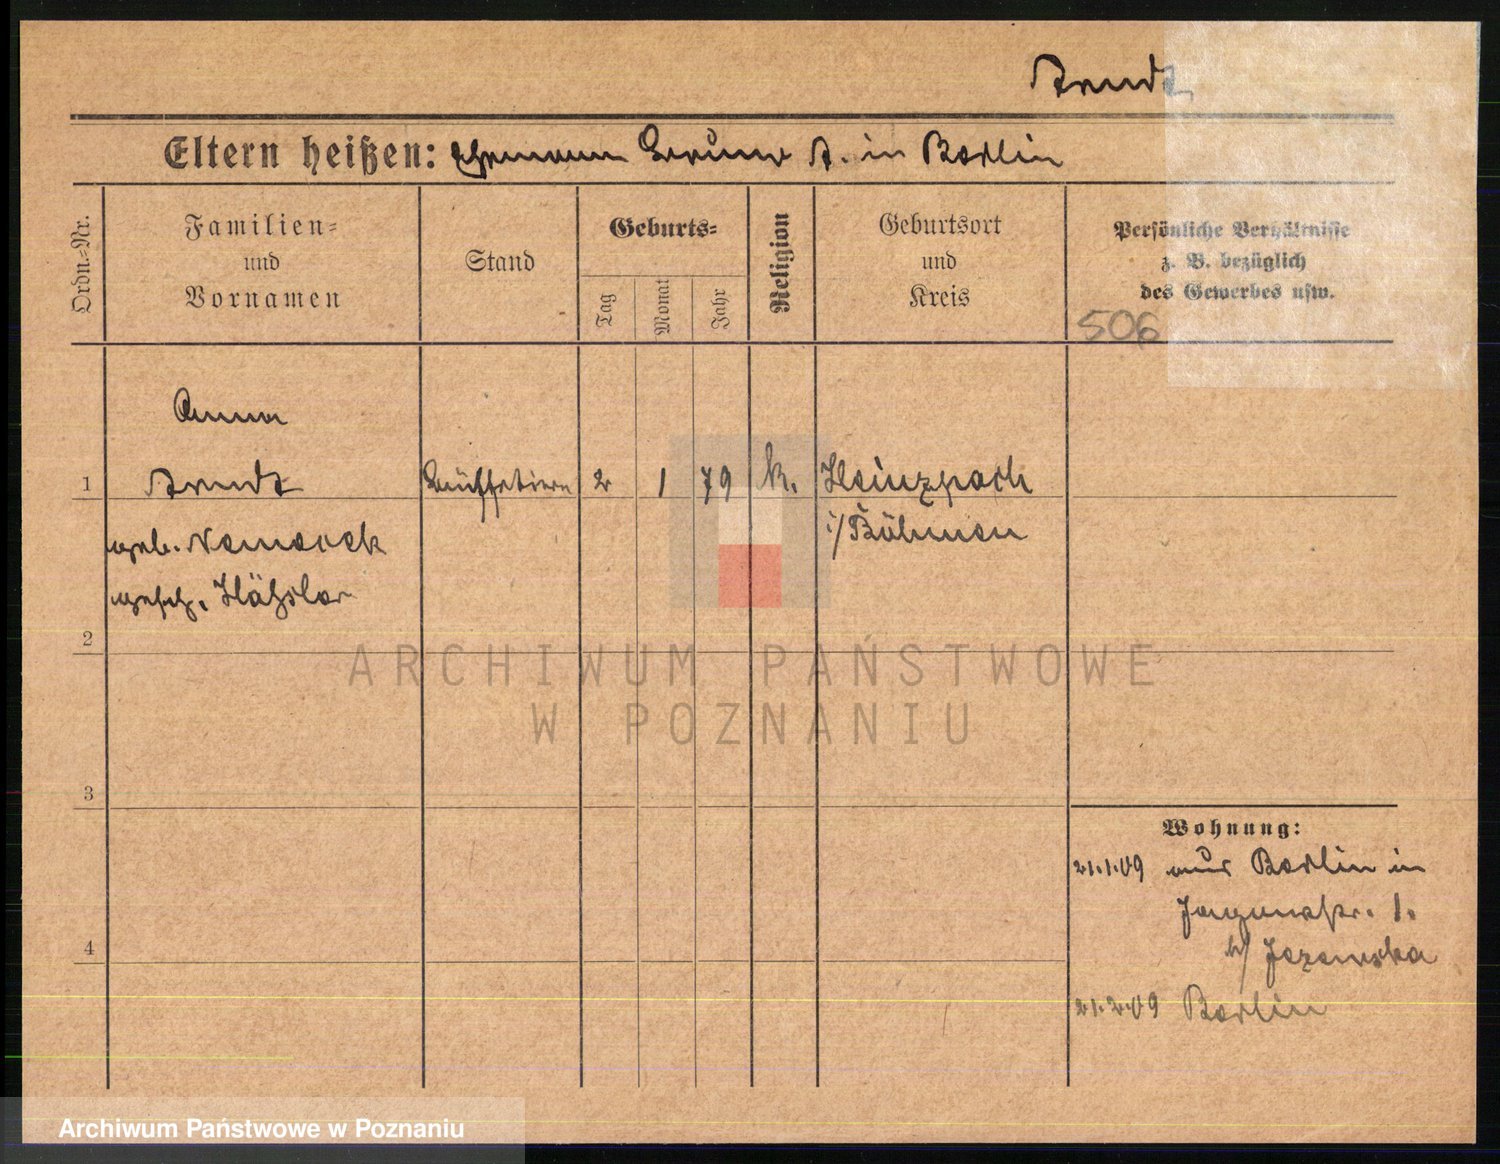 Arndt
Eltern heißen: Ehemann Bruno A. in Berlin
Ordn.-Nr.
Familien- und Vornamen
Stand
Geburts-
Tag
Monat
Jahr
Religion
Geburtsort und Kreis
Persönliche Verhältnisse
z. B. bezüglich
des Gewerbes usw.
506
Anna
1 Arndt Büffetiere 2 1 79 k. Heinzpach
geb. i/Böhmen
gesch.
2
ARCHIWUM PAŃSTWOWE
W POZNANIU
3
Wohnung:
21.1.09 aus Berlin in
1.
4
b/ Jezewska
21.2.09 Berlin
Archiwum Państwowe w Poznaniu